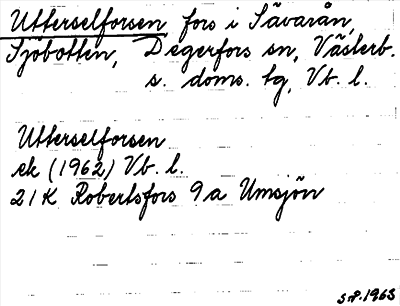 Utterselforsen, fors i Sävarån,
Sjöbotten, Degerfors sn, Västerb.
s. doms. tg, Vb. l.
Utterselforsen
ek (1962) Vb. l.
21K Robertsfors 9a Umsjön
S.P. 1963